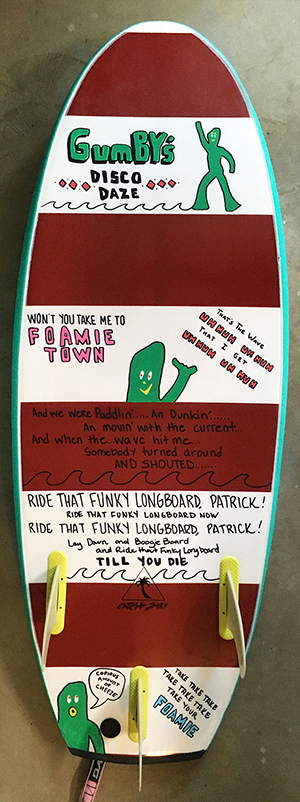 GumBY's
DISCO
DAZE
WON'T YOU TAKE ME TO
FOAMIE
TOWN
THAT'S THE WAVE
UH HUH UH HUH
THAT I GET
UH HUH UH HUH
And we were Paddlin'.... An Dunkin'......
An movin' with the current...
And when the...wave hit me...
Somebody turned around
AND SHOUTED.......
RIDE THAT FUNKY LONGBOARD, PATRICK!
RIDE THAT FUNKY LONGBOARD NOW
RIDE THAT FUNKY LONGBOARD, PATRICK!
Lay Down and Boogie Board
and Ride that Funky Longboard
TILL YOU DIE
COPIOUS
AMOUNT
OF
CHEEZE!
TAKE TAKE TAKE
TAKE TAKE TAKE
TAKE YOUR
FOAMIE